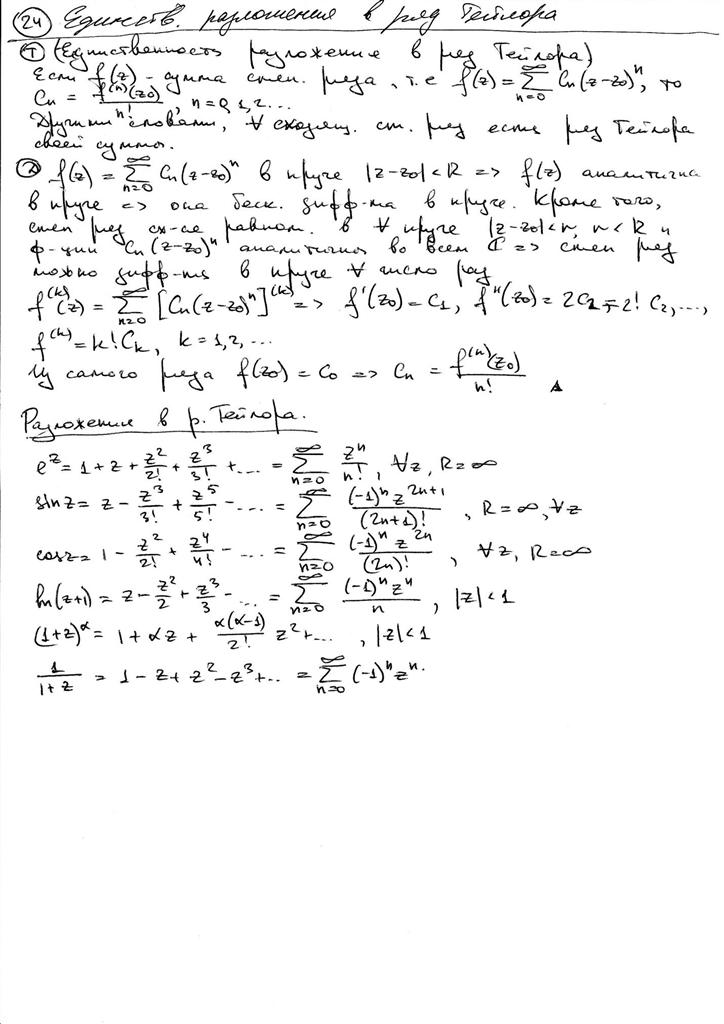 24 Единств. разложения в ряд Тейлора
Т (Единственность разложение в ряд Тейлора)
Если f(z) - сумма степ. ряда, т.е f(z) = ∑_{n=0}^{∞} Cn(z-z0)^n, то
Cn = f^{(n)}(z0)/n!, n = 0,1,2...
Другими словами, ∀ сходящ. ст. ряд есть ряд Тейлора
своей суммы.
f(z) = ∑_{n=0}^{∞} Cn(z-z0)^n в круге |z-z0|<R => f(z) аналитична
в круге => она беск. дифф-ма в круге. Кроме того,
степ ряд сх-ся равном. в ∀ круге |z-z0|<r, r<R и
ф-ции Cn(z-z0)^n аналитичны во всем ℂ => степ ряд
можно дифф-ть в круге ∀ число раз
f^{(k)}(z) = ∑_{n=0}^{∞} [Cn(z-z0)^n]^{(k)} => f'(z0) = C1, f''(z0) = 2C2 = 2! C2, ...,
f^{(k)} = k! Ck, k = 1,2, ...
Из самого ряда f(z0) = C0 => Cn = f^{(n)}(z0)/n! ▲
Разложение в р. Тейлора.
e^z = 1 + z + z^2/2! + z^3/3! + .... = ∑_{n=0}^{∞} z^n/n!, ∀z, R=∞
sin z = z - z^3/3! + z^5/5! - .... = ∑_{n=0}^{∞} (-1)^n z^{2n+1}/(2n+1)!, R=∞, ∀z
cos z = 1 - z^2/2! + z^4/4! - .... = ∑_{n=0}^{∞} (-1)^n z^{2n}/(2n)!, ∀z, R=∞
ln(z+1) = z - z^2/2 + z^3/3 - .... = ∑_{n=0}^{∞} (-1)^n z^n/n, |z|<1
(1+z)^α = 1 + αz + α(α-1)/2! z^2 + ...., |z|<1
1/(1+z) = 1 - z + z^2 - z^3 + ... = ∑_{n=0}^{∞} (-1)^n z^n.